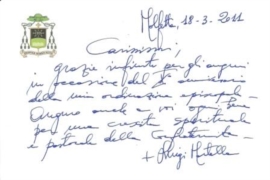 Molfetta, 18-3-2011
Carissimi,
grazie infinite per gli auguri
in occasione del X° anniversario
della mia ordinazione episcopale.
Auguro anche a voi ogni bene
per una crescita spirituale
e pastorale della Confraternita.
+ Luigi Martella